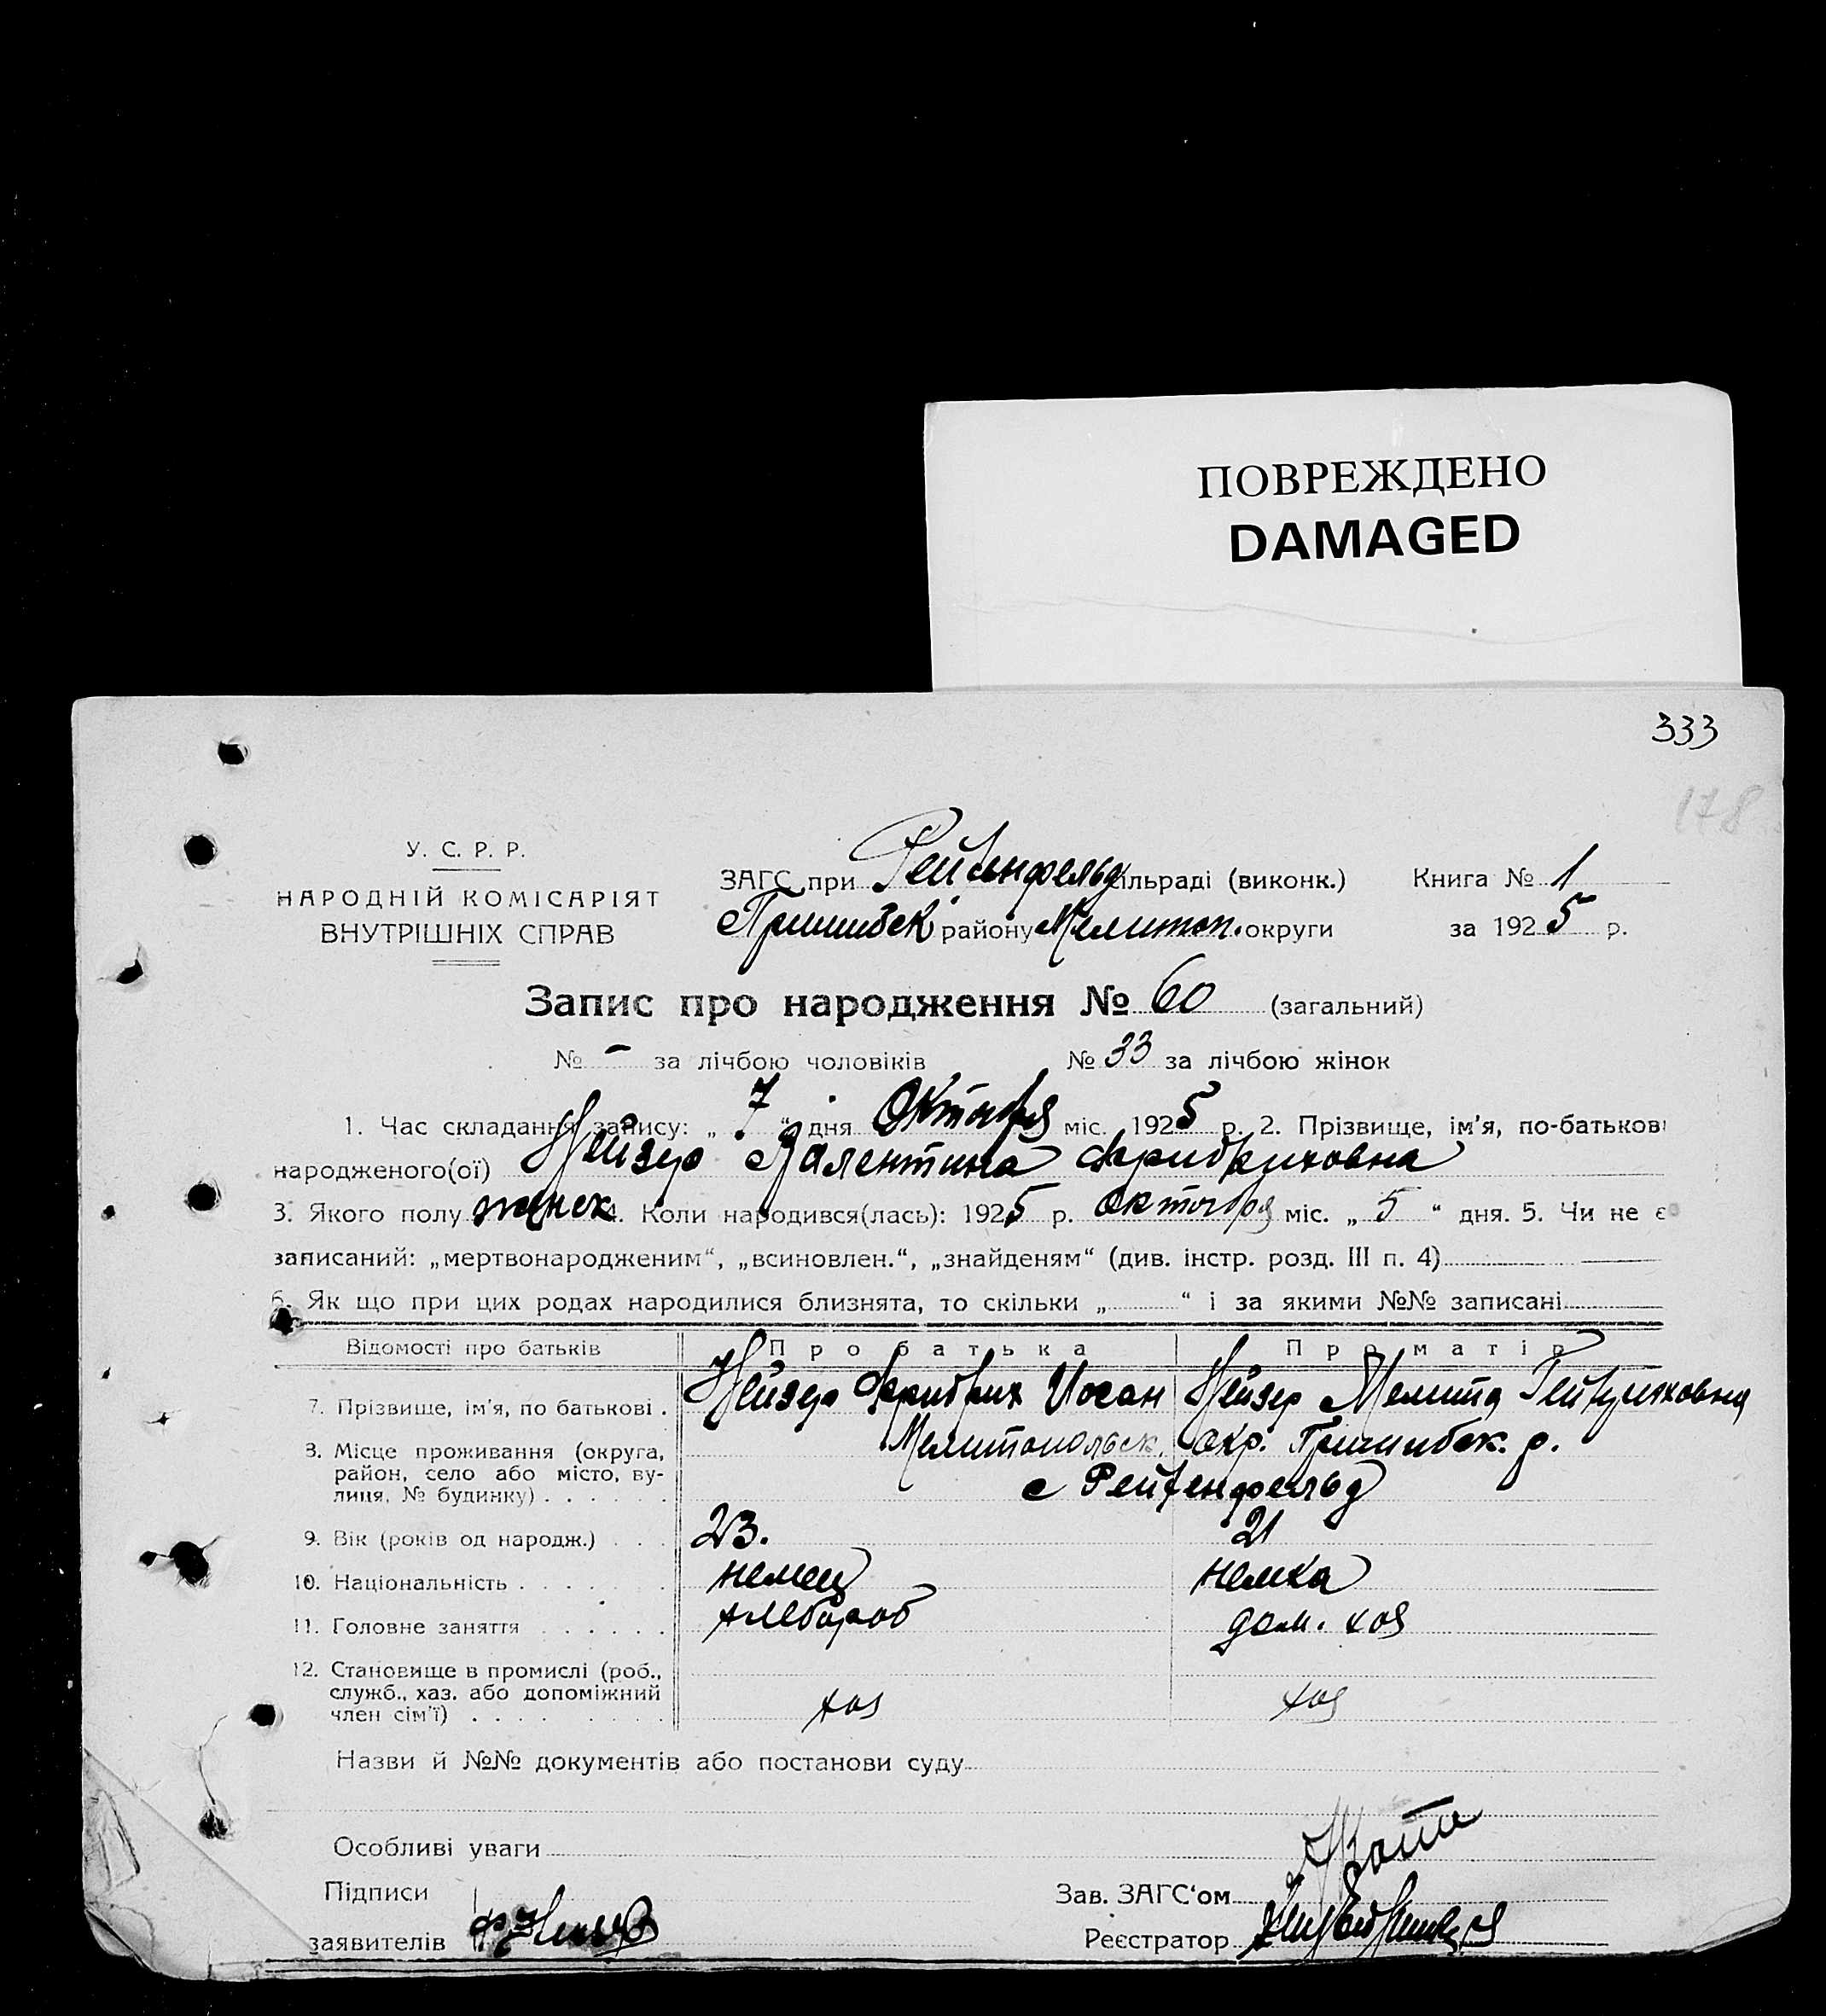 ПОВРЕЖДЕНО
DAMAGED
333
178
У. С. Р. Р.
НАРОДНІЙ КОМІСАРІЯТ
ВНУТРІШНІХ СПРАВ
ЗАГС при Рейхенфельд сільраді (виконк.) Книга № 1
Пришибск району Мелитоп. округи за 1925 р.
Запис про народження № 60 (загальний)
№ – за лічбою чоловіків № 33 за лічбою жінок
1. Час складання запису: „ 7 “ дня Октября міс. 1925 р. 2. Прізвище, ім’я, по-батькові
народженого(ої) Нейзер Валентина Фридриховна
3. Якого полу женск 4. Коли народився(лась): 1925 р. Октября міс. „ 5 “ дня. 5. Чи не є
записаний: „мертвонародженим“, „всиновлен.“, „знайденям“ (див. інстр. розд. III п. 4)
6. Як що при цих родах народилися близнята, то скільки „ “ і за якими №№ записані
Відомості про батьків Про батька Про матір
7. Прізвище, ім’я, по батькові . Нейзер Фридрих Иоган Нейзер Мелита Гейнриховна
8. Місце проживання (округа, Мелитопольск. окр. Пришибск. р.
район, село або місто, ву-
лиця, № будинку) . . . . . . с Рейхенфельд
9. Вік (років од народж.) . . . 23. 21
10. Національність . . . . . . . немец немка
11. Головне заняття . . . . . . хлебороб дом. хоз
12. Становище в промислі (роб.,
служб., хаз. або допоміжний
член сім’ї) . . . . . . . . . хоз хоз
Назви й №№ документів або постанови суду
Особливі уваги
Підписи Зав. ЗАГС‘ом
заявителів Реєстратор